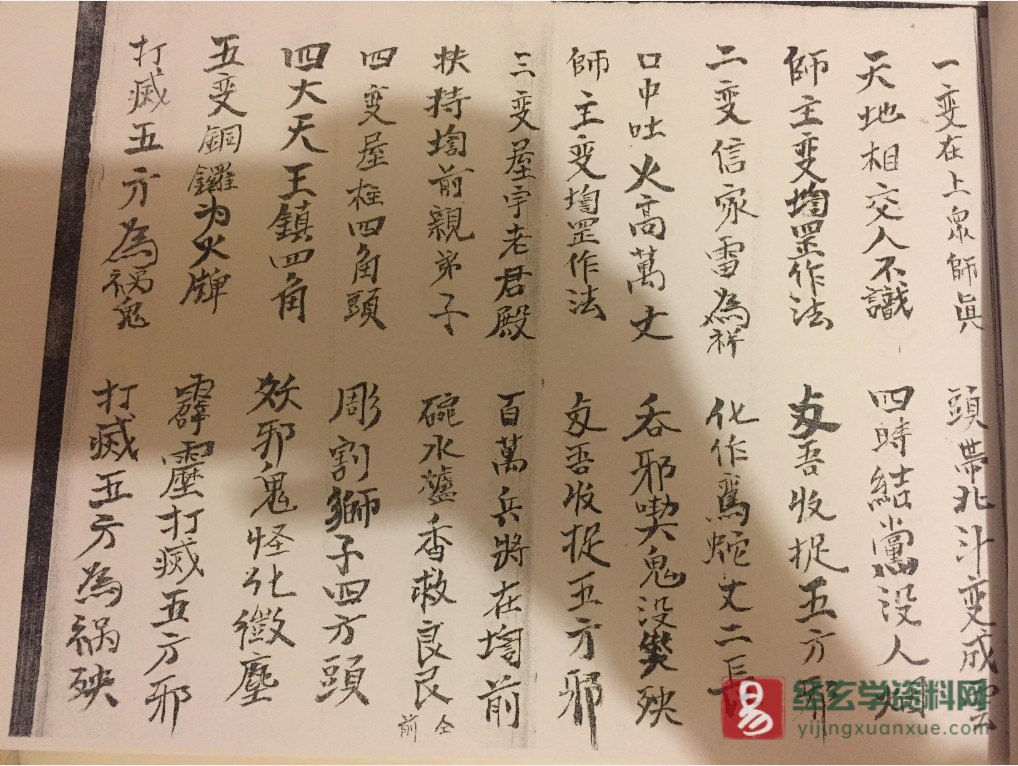 一变在上衆師眞 頭帶北斗变成
天地相交人不識 四時結黨没人
師主变壇罡作法 㪅吾收捉五方邪
二变信家雷為祥 化作馬蛇丈二長
口中吐火高萬丈 吞邪喫鬼没殃
師主变壇罡作法 㪅吾收捉五方邪
三变屋宇老君殿 百萬兵將在壇前
扶持壇前親弟子 碗水爐香救良民 仝前
四变屋柱四角頭 彫割獅子四方頭
四大天王鎮四角 妖邪鬼怪化微塵
五变銅鑼为火牌 霹靂打滅五方邪
打滅五方為禍鬼 打滅五方為禍殃
纭玄学资料网
yijingxuanxue.com
易